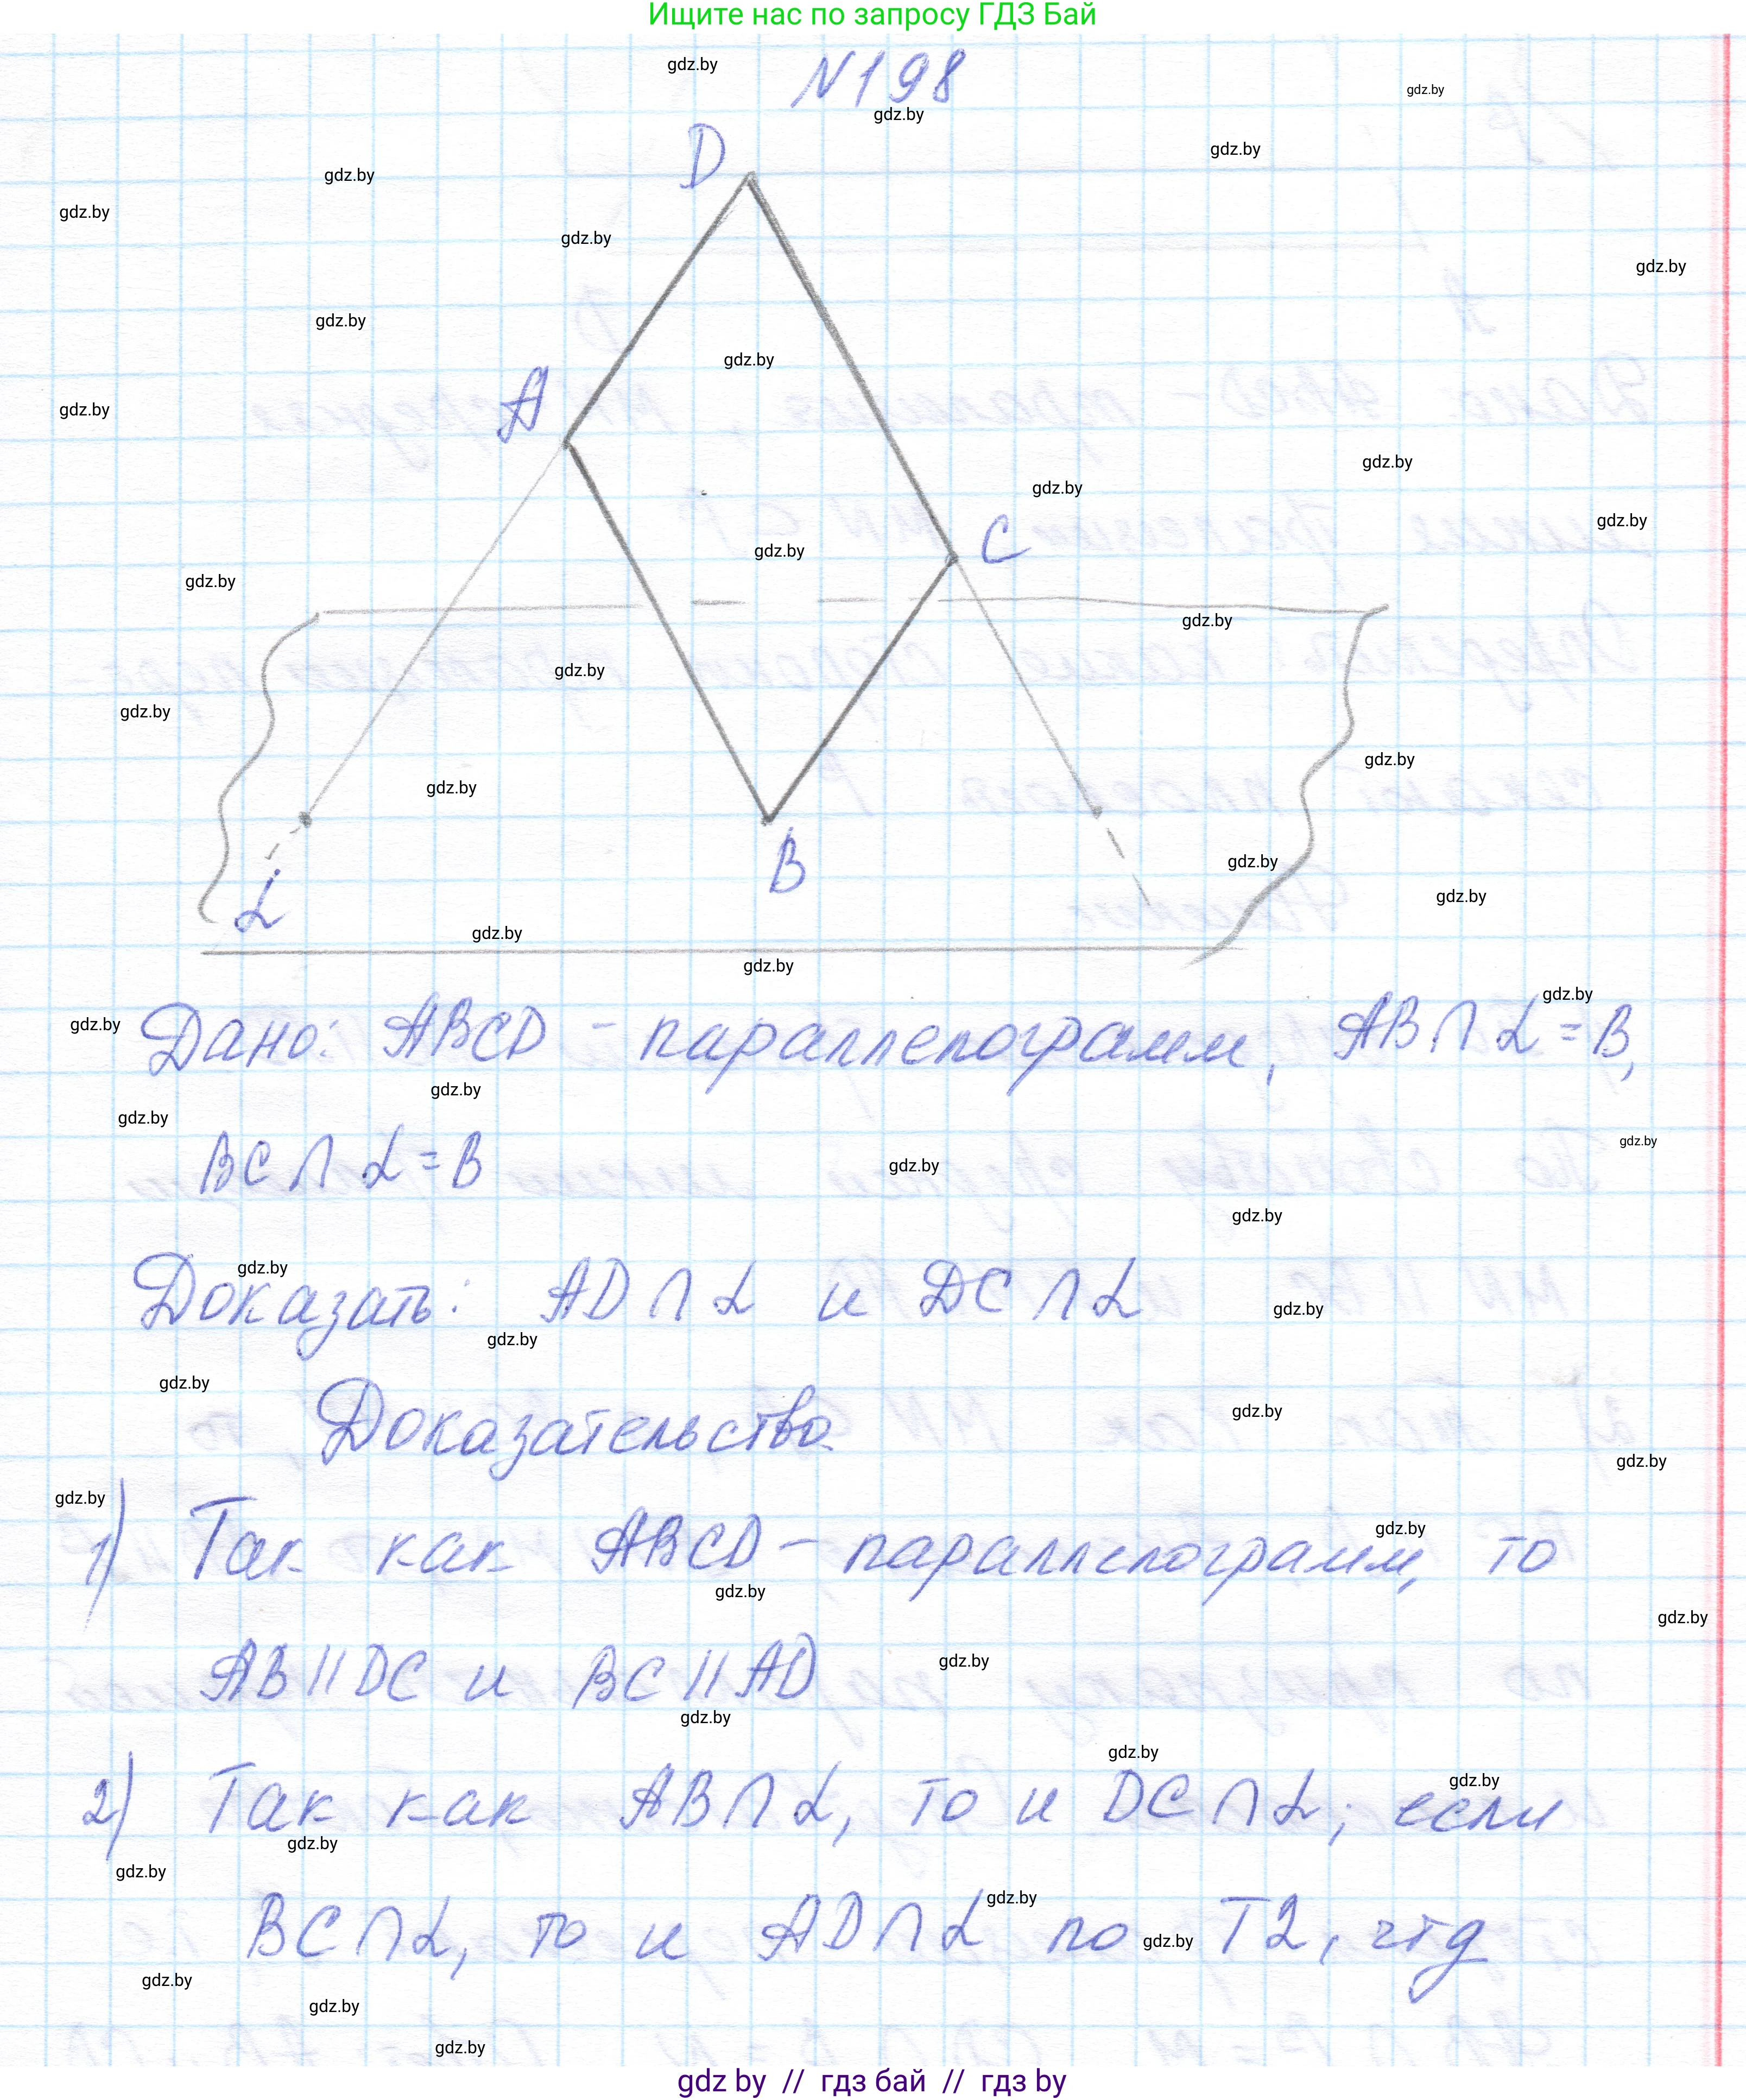 Ищите нас по запросу ГДЗ Бай
N198
D
A
C
B
α
Дано: ABCD - параллелограмм, AB∩α=B,
BC∩α=B
Доказать: AD∩α и DC∩α
Доказательство.
1) Так как ABCD - параллелограмм, то
AB||DC и BC||AD
2) Так как AB∩α, то и DC∩α; если
BC∩α, то и AD∩α по Т2, чтд
gdz by // гдз бай // гдз by